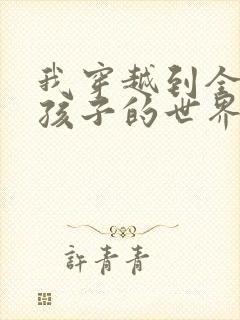 我穿越到全
孩子的世界
許青青